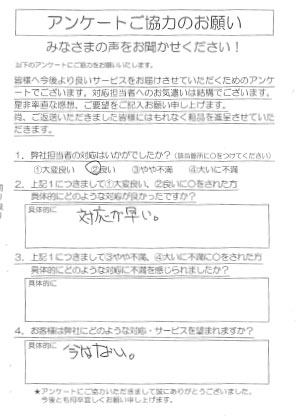 アンケートご協力のお願い
みなさまの声をお聞かせください！
以下のアンケートにご協力をお願いいたします。
皆様へ今後より良いサービスをお届けさせていただくためのアンケ
ートでございます。対応担当者へのお気遣いは結構でございます。
是非率直な感想、ご要望をご記入お願い申し上げます。
尚、ご返送いただきました皆様にはもれなく粗品を進呈させていた
だきます。
1．弊社担当者の対応はいかがでしたか？（該当箇所に○をつけてください）
①大変良い ②良い ③やや不満 ④大いに不満
2．上記１につきまして①大変良い、②良いに○をされた方
具体的にどのような対応が良かったですか？
具体的に
対応が早い。
3．上記１につきまして③やや不満、④大いに不満に○をされた方
具体的にどのような対応に不満を感じられましたか？
具体的に
4．お客様は弊社にどのような対応・サービスを望まれますか？
具体的に
今はない。
★アンケートにご協力いただきまして誠にありがとうございました。
今後とも何卒宜しくお願い申し上げます。